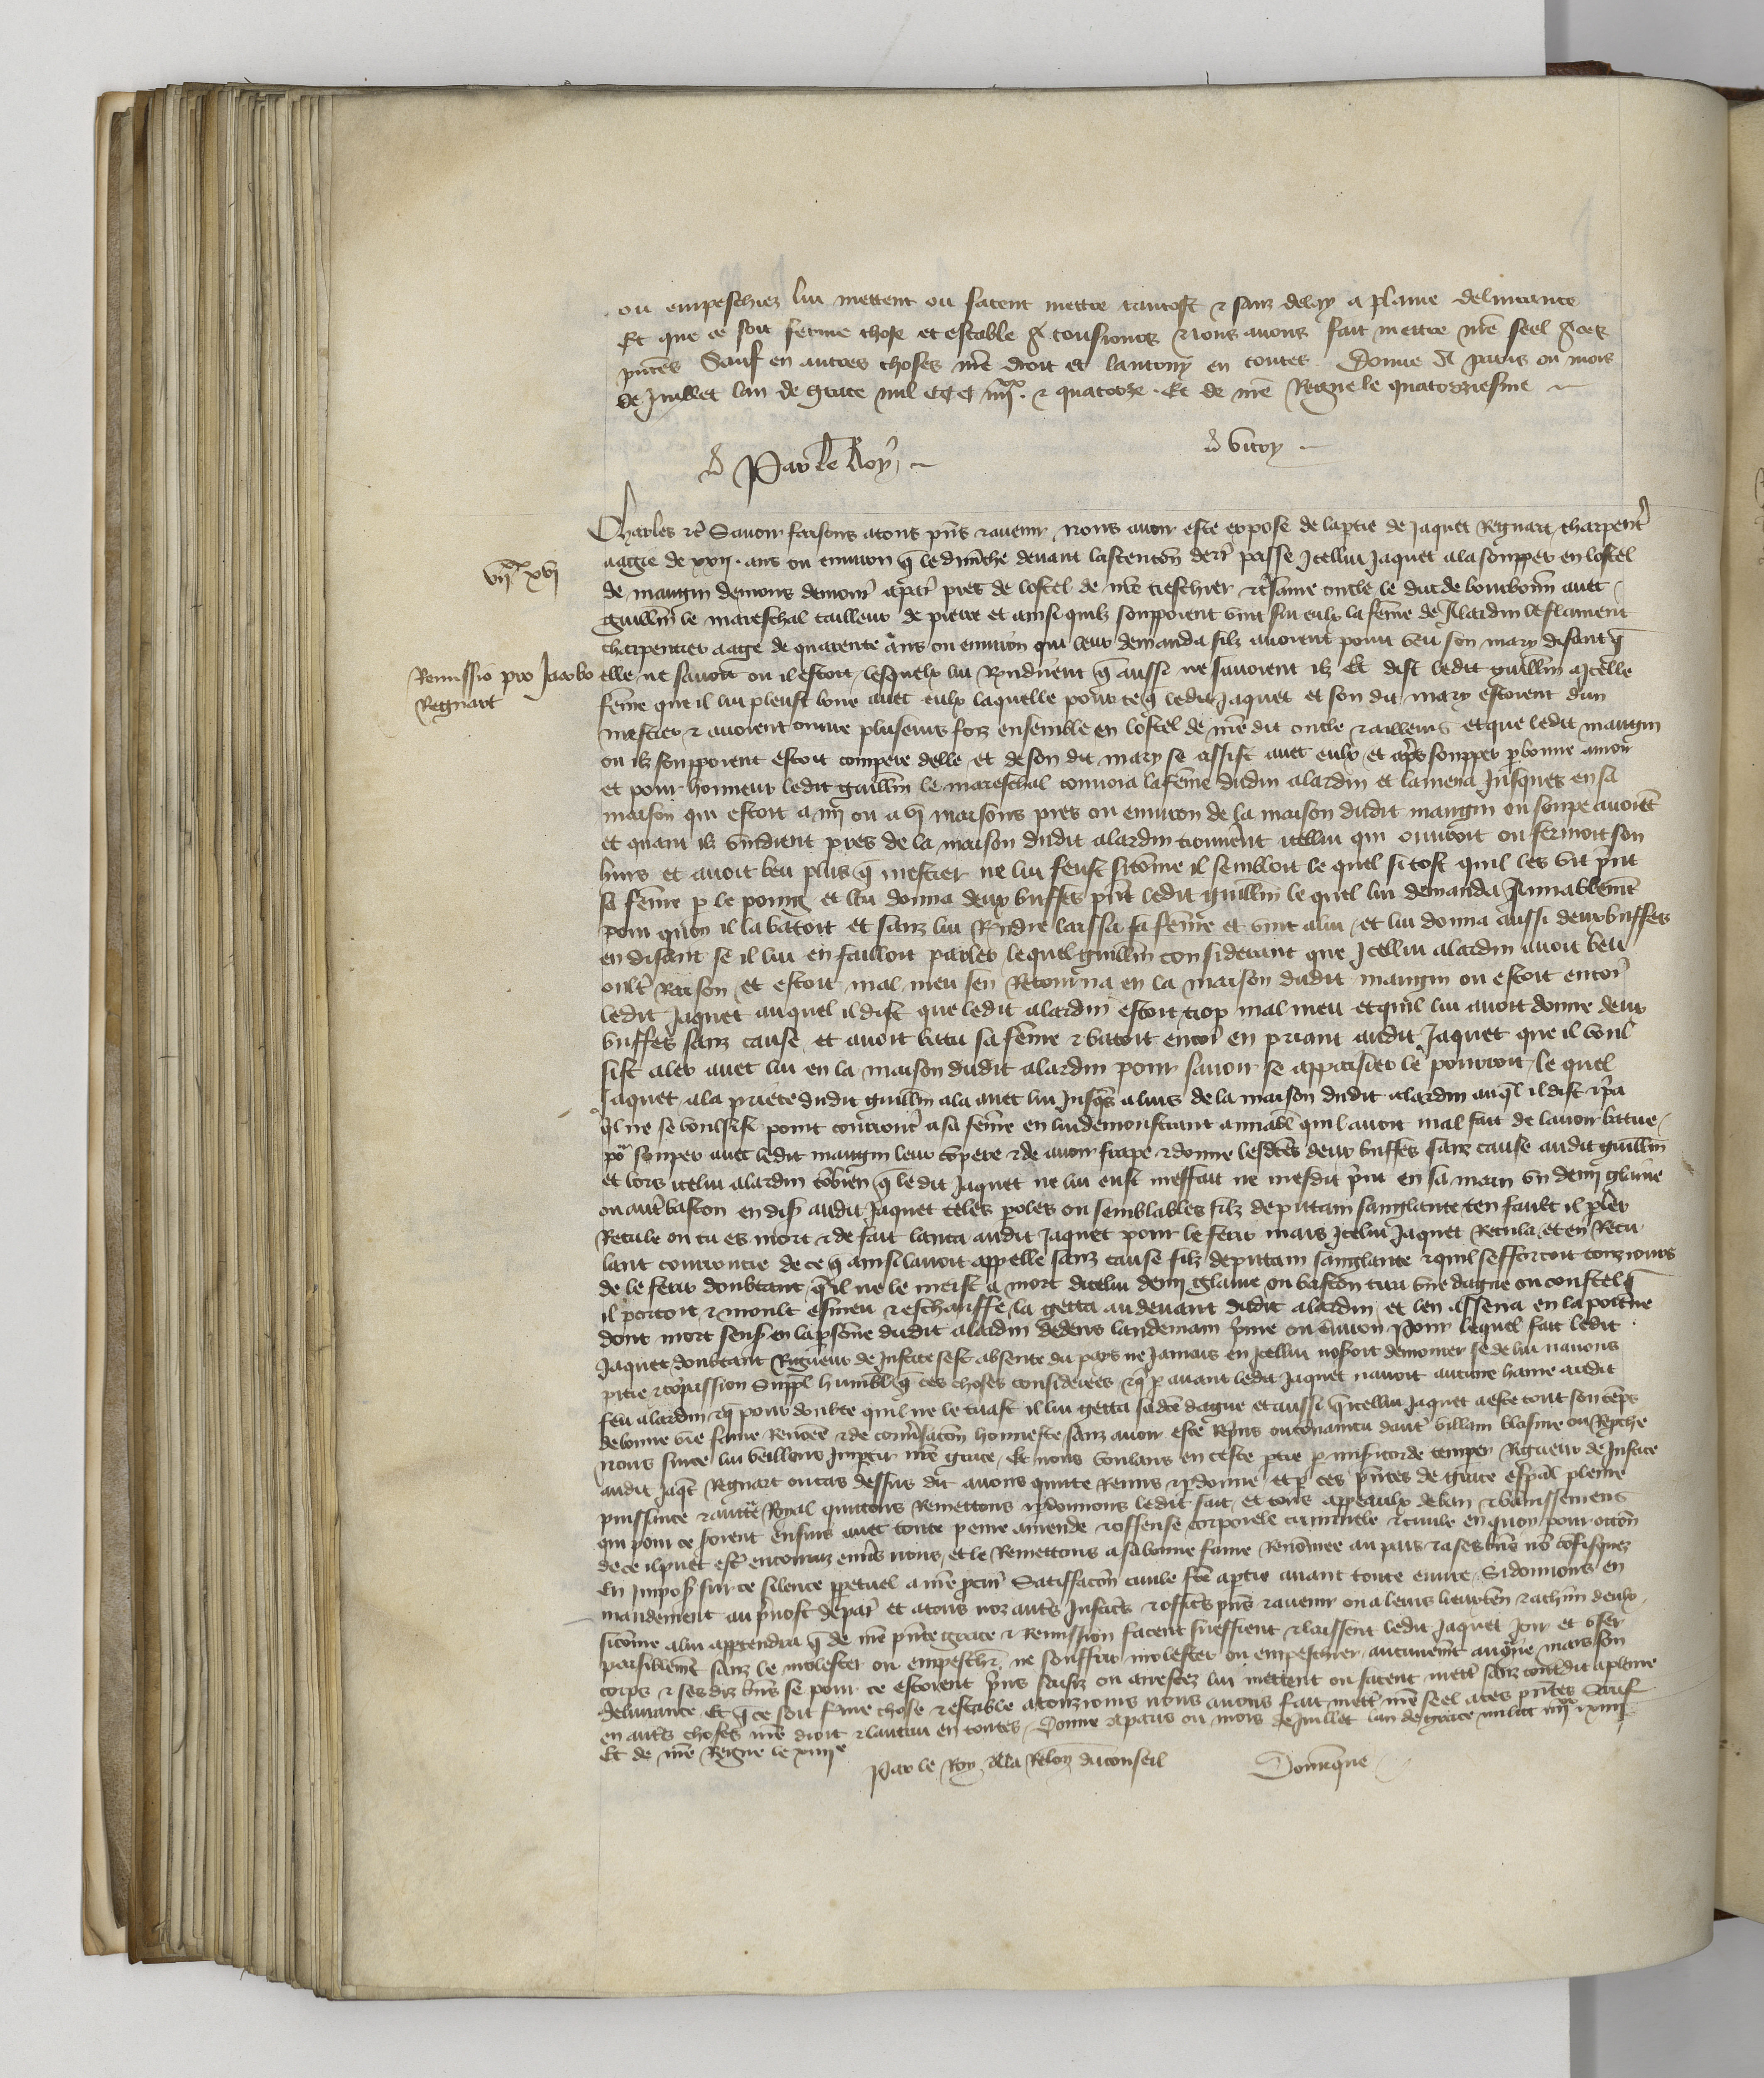 ou empeschiez lui mettent ou facent mettre tantost & sanz delay a plaine delivrance
Et que ce soit ferme chose et estable a tousiours Nous avons fait mettre nre seel a ces
pntes Sauf en autres choses nre droit et lautruy en toutes Donne A paris ou mois
de juillet lan de grace mil ccc iiijxx & quatorze Et de nre Regne le quatorziesme
Par le Roy
vitry
Charles etc Savoir faisons a tous pns & avenir Nous avoir este expose de la ptie de Jaquet Regnart charpentr
vijxx xvj
aagie de xxij ans ou environ q le dimche devant lascencon derr passe Icellui Jaquet ala soupper en lostel
de maugin demons demour a par pres de lostel de nre treschier & tresame oncle le duc de bourbonn avec
guillm le mareschal tailleur de pierre et ainsi quilz soupoient vint sur eulx la feme de Alardin le flament
charpentier aage de quarente ans ou environ qui leur demanda silz avoient point veu son mary disant q
Remissio pro Jacobo
Regnart
elle ne savoit ou il estoit lesquelx lui Rendirent q aussi ne savoient ilz Et dist ledit guillm a Icelle
feme que il lui pleust boire avec eulx laquelle pour ce q ledit Jaquet et son dit mary estoient dun
mestier & avoient ouvre pluseurs foiz ensemble en lostel de nre dit oncle & ailleurs et que ledit maugin
ou ilz soupoient estoit compere delle et de son dit mary se assist avec eulx et aps soupper p bonne amour
et pour honneur ledit guillm le mareschal convoia la feme dudit alardin et la mena Jusques en sa
maison qui estoit a iiij ou a vj maisons pres ou environ de la maison dudit maugin ou soupe avoiet
et quant ilz vindrent pres de la maison dudit alardin trouverent icellui qui ouvroit ou fermoit son
huis et avoit beu plus q mestier ne lui feust sicome il sembloit le quel si tost quil les vit print
sa feme p le poing et lui donna deux buffes pnt ledit guillm le quel lui demanda Amiablemet
pour quoy il la batoit et sanz lui Rendre laissa sa feme et vint a lui et lui donna aussi deux buffes
en disant se il lui en failloit parler lequel guillm considerant que Icellui alardin avoit beu
oultr Raison et estoit mal meu sen Retourna en la maison dudit maugin ou estoit encor
ledit Jaquet auquel il dist que ledit alardin estoit trop mal meu et quil lui avoit donne deux
buffes sanz cause et avoit batu sa feme & batoit encor en priant audit Jaquet que il voul
sist aler avec lui en la maison dudit alardin pour savoir se appaisier le pourroit le quel
Jaquet a la priere dudit guillm ala avec lui Jusqs a luis de la maison dudit alardin auql il dist & pria
ql ne se voulsist point courroucr a sa feme en lui demonstrant amiabl quil avoit mal fait de lavoir batue
por souper avec ledit maugin leur copere & de avoir frape & donne lesdces deux buffes sanz cause audit guillm
et lors icelui alardin cobien q ledit Jaquet ne lui eust meffait ne mesdit print en sa main un demj glaive
ou autr baston en dis audit Jaquet teles poles ou semblables filz de putain sanglante ten fault il pler
Recule ou tu es mort & de fait lanca audit Jaquet pour le ferir mais Icelui Jaquet Recula et en Recu
lant courroucie de ce q ainsi lavoit appelle sanz cause filz de putain sanglante & quil sefforcoit touziours
de le ferir doubtant ql ne le meist a mort dicelui demj glaive ou baston tira une dague ou coustel q
il portoit & moult esmeu & eschauffe la getta au devant dudit alardin et len assena en la poitrine
dont mort sensuy en la psone dudit alardin dedens landemain prime ou environ Pour lequel fait ledit
Jaquet doubtant Rigueur de Justice sest absente du pays ne Jamais en Icellui noseroit demourer se de lui navons
pitie & copassion Suppl humblt q ces choses considerees & q p avant ledit Jaquet navoit aucune haine audit
feu alardin & q pour doubte quil ne le tuast il lui getta sadce dague et aussi q icellui Jaquet a este tout son teps
de bonne vie fame Renomee & de conversacon honneste sanz avoir este Repris ou convaincu dautr villain blasme ou Reproche
nous sur ce lui veillons Impartir nre grace Et nous voulans en ceste ptie p misericorde temper Rigueur de Justice
audit Jaqt Regnart ou cas dessus dit avons quitte Remis & pdonne et p ces pntes de grace espal pleine
puissance & auctte Royal quittons Remettons & pdonnons ledit fait et tous appeaulx de ban & banissemens
qui pour ce soient ensuis avec toute peine amende & offense corporele criminele & civile en quoy pour occon
de ce il puet estr encouru envers nous et le Remettons a sa bonne fame Renomee au pais & a ses biens no cofisquez
En Impost sur ce silence ppetuel a nre pcur Satisfacon civile fce a partie avant toute euvre Si donnons en
mandement au prevost de paris et a tous noz autres Justices & offices pns & avenir ou a leurs lieuxten & a chun deulx
sicome a lui apptendra q de nre pnte grace & Remission facent sueffrent & laissent ledit Jaquet Joir et user
paisiblemet sanz le molester ou empescher ne souffrir molester ou empeschier aucunemt au contre mais son
corps & ses diz biens se pour ce estoient pris saisiz ou arrestez lui mettent ou facent mettr sanz contredit a pleine
delivrance Et q ce soit ferme chose & estable a touziours nous avons fait mettr nre seel a ces pntes Sauf
en autres choses nre droit & lautrui en toutes Donne A paris ou mois de Juillet lan de grace mil ccc iiijxx xiiij
Et de nre Regne le xiiije
Par le Roy A la Relon du conseil
Dominque